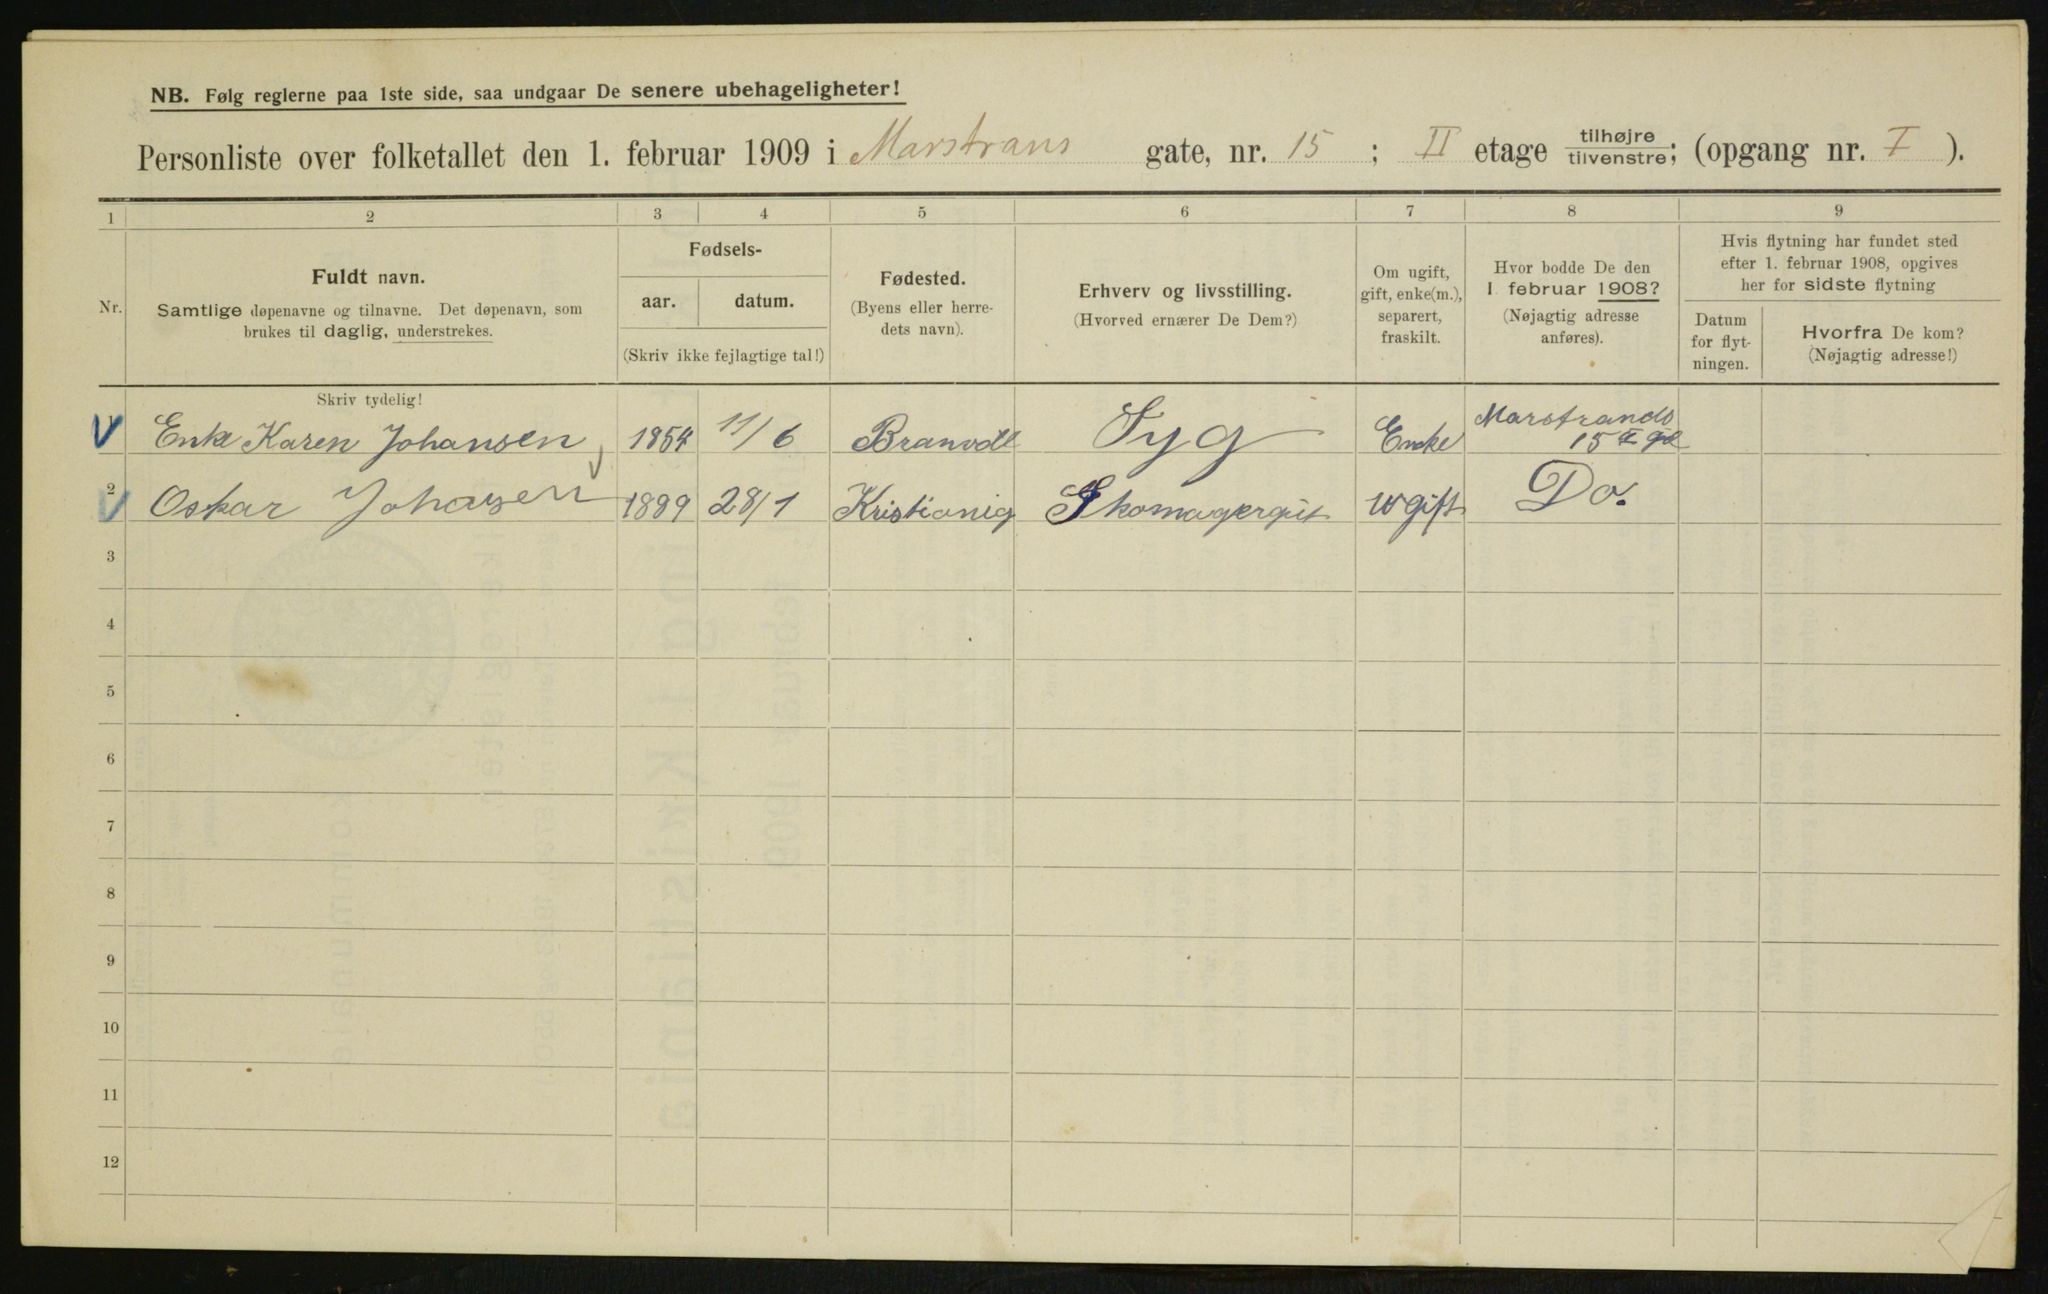 NB. Følg reglerne paa 1ste side, saa undgaar De senere ubehageligheter!
Personliste over folketallet den 1. februar 1909 i Marstrans gate, nr. 15 ; II etage tilhøjre/tilvenstre; (opgang nr. I ).
1 2 3 4 5 6 7 8 9
Nr.
Fuldt navn.
Samtlige døpenavne og tilnavne. Det døpenavn, som
brukes til daglig, understrekes.
Fødsels-
aar. datum.
(Skriv ikke fejlagtige tal!)
Fødested.
(Byens eller herre-
dets navn).
Erhverv og livsstilling.
(Hvorved ernærer De Dem?)
Om ugift,
gift, enke(m.),
separert,
fraskilt.
Hvor bodde De den
1. februar 1908?
(Nøjagtig adresse
anføres).
Hvis flytning har fundet sted
efter 1. februar 1908, opgives
her for sidste flytning
Datum
for flyt-
ningen.
Hvorfra De kom?
(Nøjagtig adresse!)
Skriv tydelig!
1 Enke Karen Johansen 1854 11/6 Branvdl Syg Encke Marstrands
15
2 Oskar Johansen 1889 28/1 Kristianig Skomagergut ugift Do.
3
4
5
6
7
8
9
10
11
12